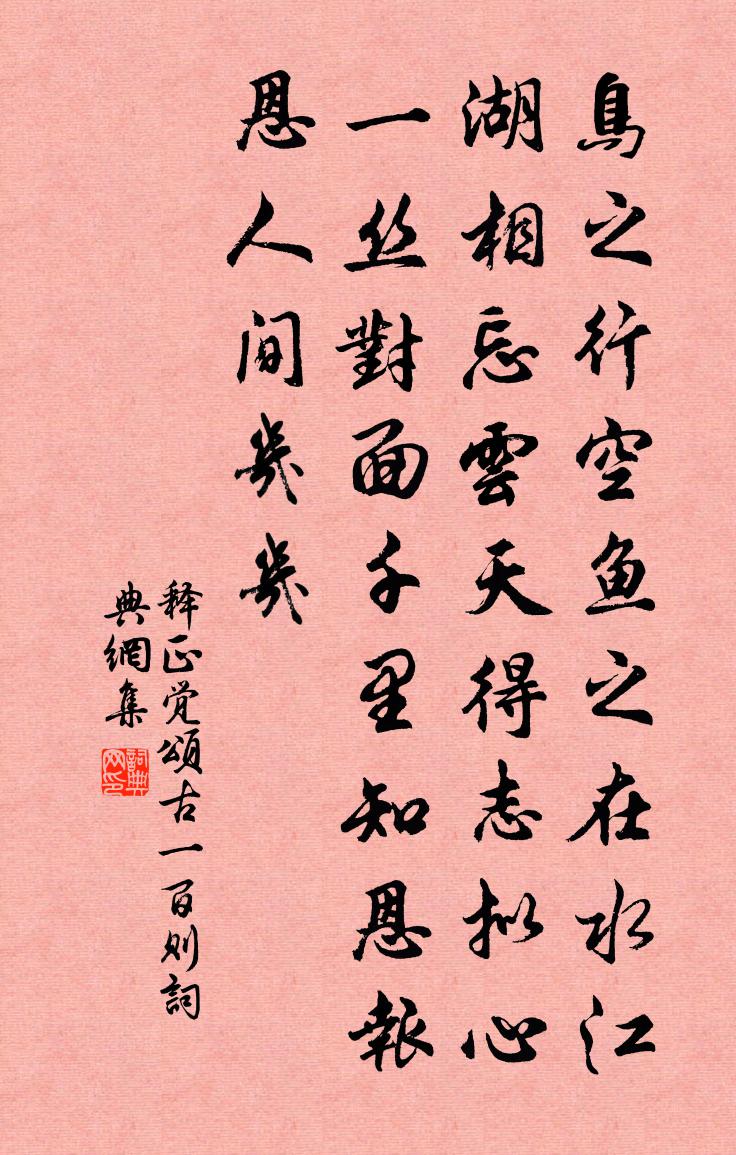 鳥之行空鱼之在水江
湖相忘雲天得志拟心
一丝對面千里知恩報
恩人间幾幾
释正觉頌古一百则詞
典網集
詞典
网印